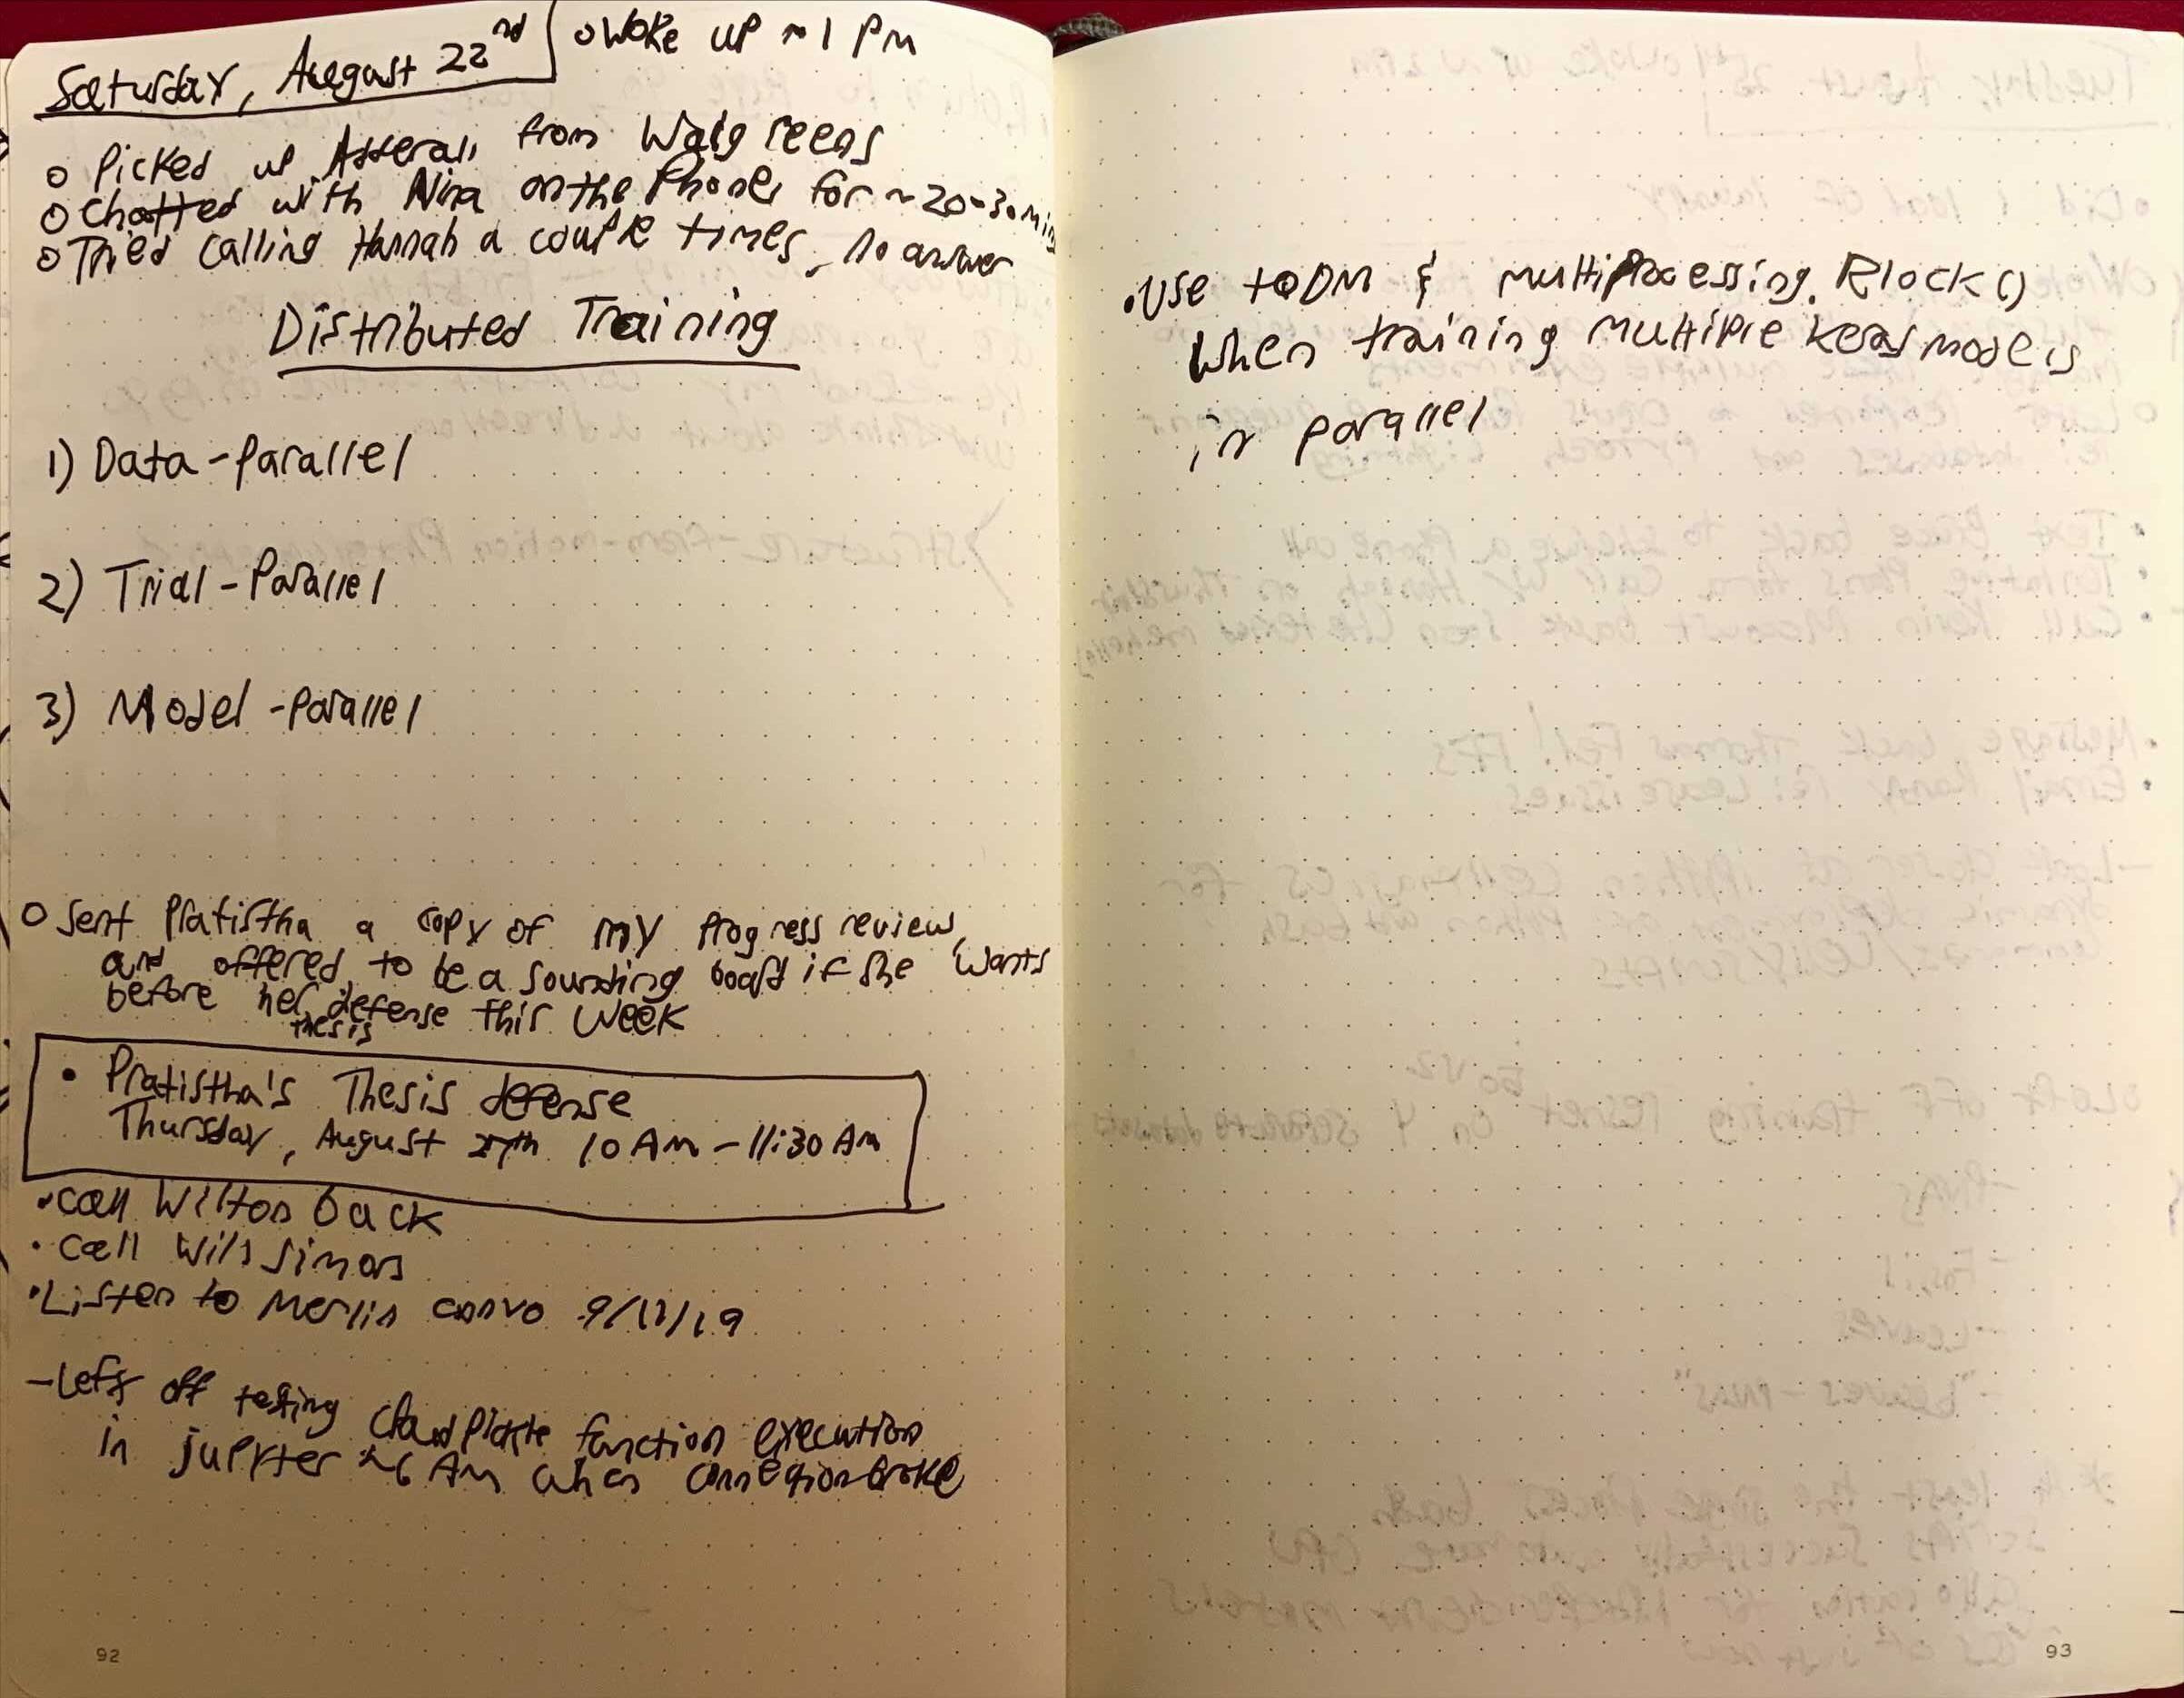 Saturday, August 22nd
o Woke up ~ 1 PM
o Picked up Adderall from Walgreens
o Chatted with Nina on the Phone for ~20-30 min
o Tried calling Hannah a couple times, no answer
Distributed Training
1) Data-parallel
2) Trial-Parallel
3) Model-parallel
o Sent Pratistha a copy of my progress review,
and offered to be a sounding board if she wants
before her thesis defense this week
• Pratistha's Thesis defense
Thursday, August 27th 10 AM - 11:30 AM
• Call Wilton back
• Call Wills
• Listen to Merlin convo
- Left off testing cloudpickle function execution
in jupyter ~6 AM when connection broke
92
• Use TQDM & multiprocessing.Rlock()
When training multiple keras models
in parallel
93